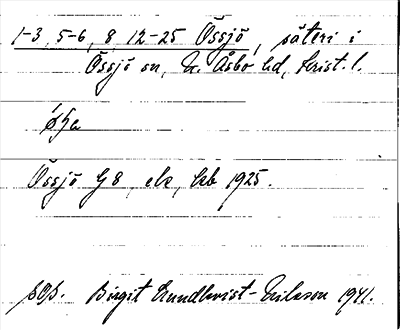 1-3, 5-6, 8, 12-25 Össjö, säteri i
Össjö sn, N. Åsbo hd, Krist. l.
Össjö G8, ek, hb 1925.
pop. Birgit Lundkvist-Nilsson 1941.